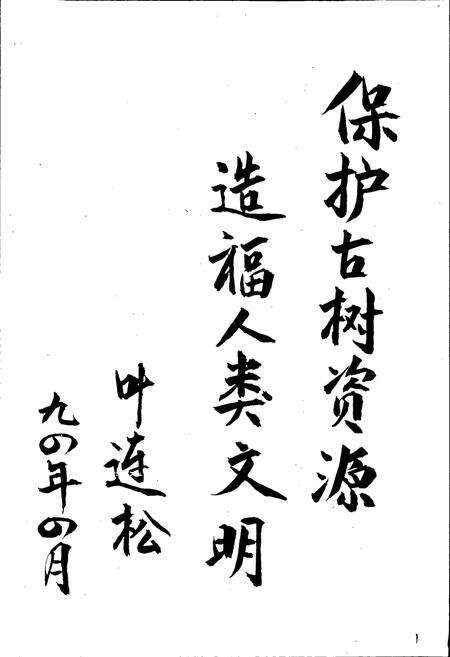 保护古树资源
造福人类文明
叶连松
九四年四月
1